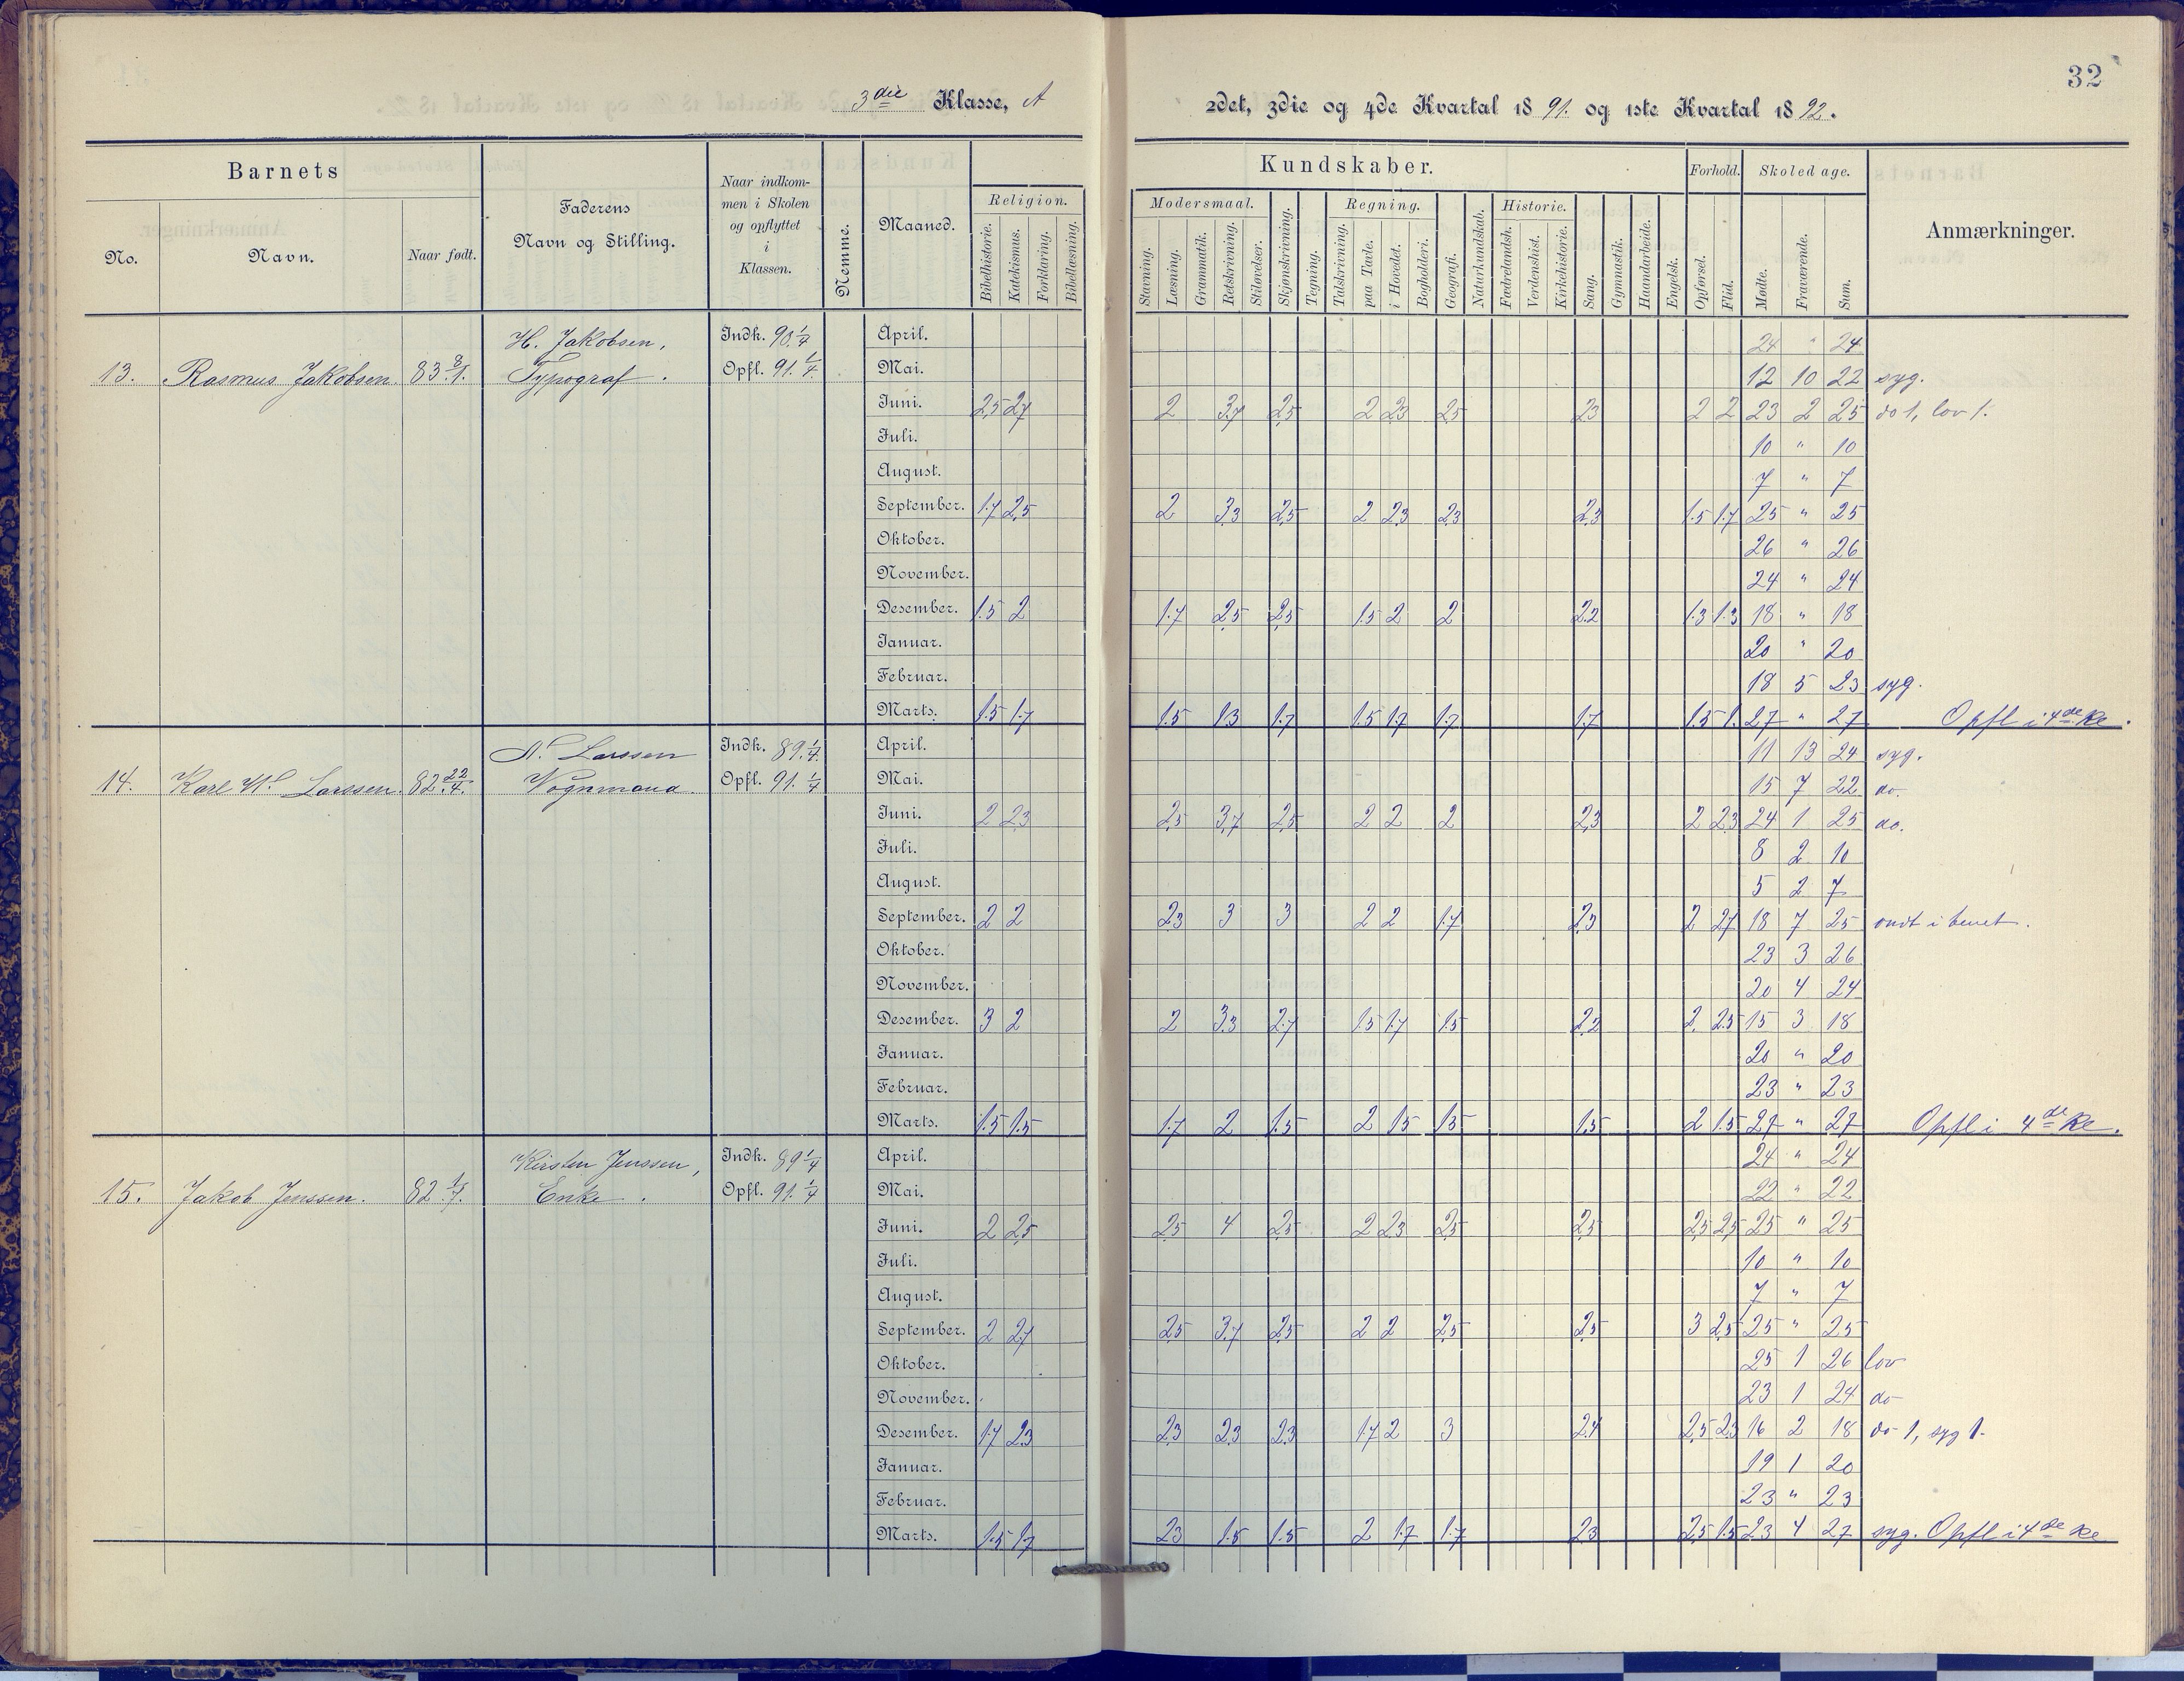 32
3die Klasse, A
2det, 3die og 4de Kvartal 1891. og 1ste Kvartal 1892.
Barnets
No.
Navn.
Naar født.
Faderens
Navn og Stilling.
Naar indkom-
men i Skolen
og opflyttet
i
Klassen.
Nemme.
Maaned.
Kundskaber.
Religion.
Bibelhistorie.
Katekismus.
Forklaring.
Bibellæsning.
Modersmaal.
Stavning.
Læsning.
Grammatik.
Retskrivning.
Stiløvelser.
Skjønskrivning.
Tegning.
Regning.
Talskrivning.
paa Tavle.
i Hovedet.
Bogholderi.
Geografi.
Naturkundskab.
Historie.
Fædrelandsh.
Verdenshist.
Kirkehistorie.
Sang.
Gymnastik.
Haandarbeide.
Engelsk.
Forhold.
Opførsel.
Flid.
Skoledage.
Mødte.
Fraværende.
Sum.
Anmærkninger.
13. Rasmus Jakobsen. 83 8/1.
H. Jakobsen,
Typograf.
Indk. 90. 1/4
Opfl. 91. 1/4.
April. 24 " 24
Mai. 12 10 22 syg.
Juni. 2,5 2,7 2 3,7 2,5 2 2,3 2,5 2,3 2 2 23 2 25 do 1, lov 1.
Juli. 10 " 10
August. 7 " 7
September. 1.7 2,5 2 3,3 2,5 2 2,3 2,3 2,3 1.5 1.7 25 " 25
Oktober. 26 " 26
November. 24 " 24
Desember. 1.5 2 1.7 2,5 2,5 1.5 2 2 2.2 1.3 1.3 18 " 18
Januar. 20 " 20
Februar. 18 5 23 syg.
Marts. 1.5 1.7 1.5 1.3 1.7 1.5 1.7 1.7 1.7 1.5 1. 27 " 27 Opfl i 4de Kl.
14. Karl M. Larssen. 82 22/4.
N. Larssen
Vognmand.
Indk. 89. 1/4.
Opfl. 91. 1/4
April. 11 13 24 syg.
Mai. 15 7 22 do.
Juni. 2 2,3 2,5 3,7 2,5 2 2 2 2,3 2 2,3 24 1 25 do.
Juli. 8 2 10
August. 5 2 7
September. 2 2 2,3 3 3 2 2 1.7 2,3 2 2,7 18 7 25 ondt i benet.
Oktober. 23 3 26
November. 20 4 24
Desember. 3 2 2 3.3 2.7 1.5 1.7 1.5 2.2 2. 2.5 15 3 18
Januar. 20 " 20
Februar. 23 " 23
Marts. 1.5 1.5 1.7 2 1.5 2 1.5 1.5 1.5 2 1.5 27 " 27 Opfl i 4de Kl.
15. Jakob Jenssen. 82 1/7.
Kirsten Jenssen,
Enke.
Indk. 89 1/4
Opfl. 91. 1/4
April. 24 " 24
Mai. 22 " 22
Juni. 2 2,5 2,5 4 2,5 2 2,3 2,5 2,5 2,5 2,5 25 " 25
Juli. 10 " 10
August. 7 " 7
September. 2 2,7 2,5 3,7 2,5 2 2 2,5 2,5 3 2,5 25 " 25
Oktober. 25 1 26 lov
November. 23 1 24 do
Desember. 1.7 2.3 2,3 2,3 2,3 1.7 2 3 2.4 2,5 2,3 16 2 18 do 1, syg 1.
Januar. 19 1 20
Februar. 23 " 23
Marts. 1.5 1.7 2,3 1.5 1.5 2 1.7 1.7 2,3 2,5 1.5 23 4 27 syg. Opfl i 4de Kl